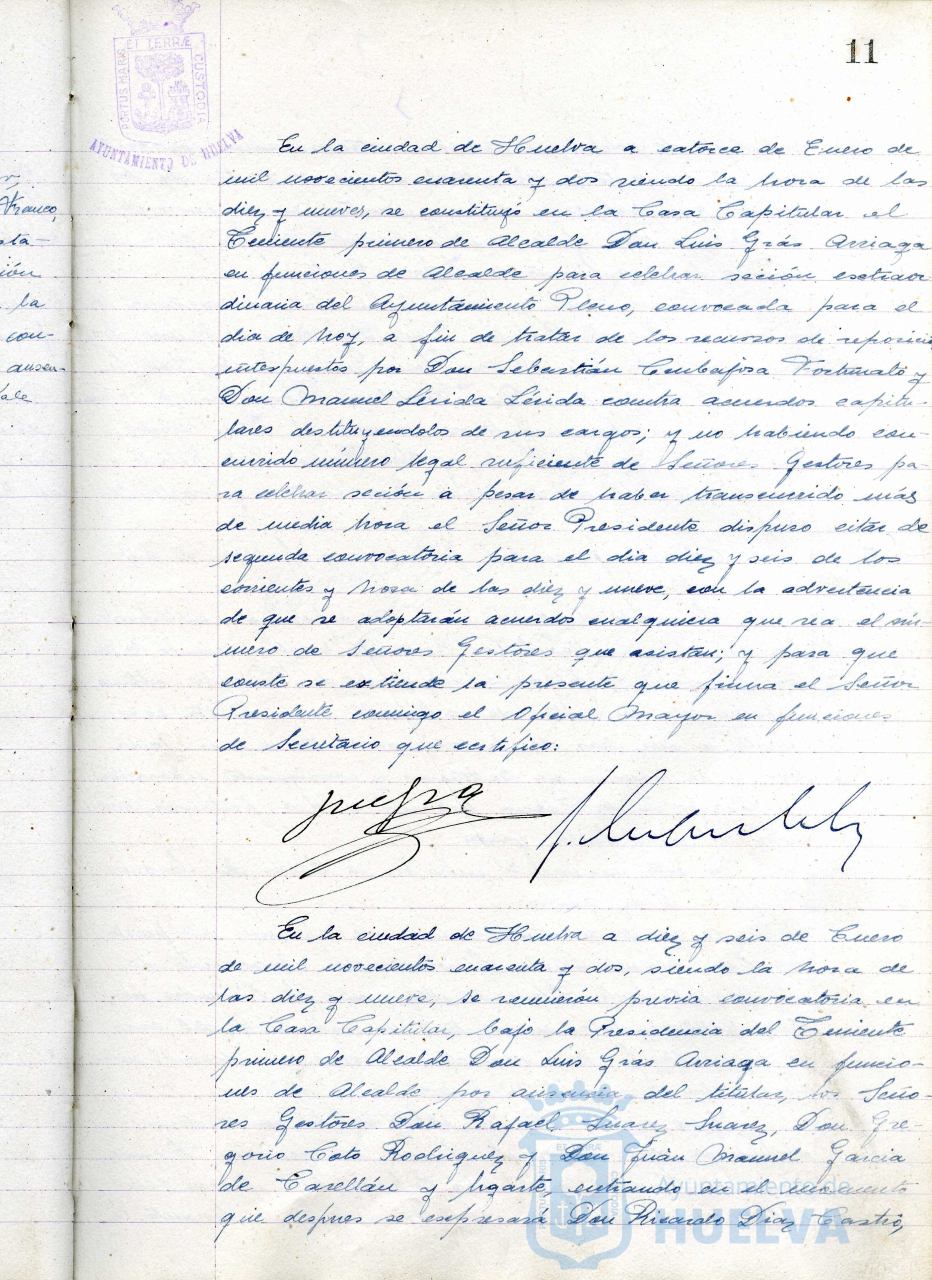 11
PORTUS MARIS
ET TERRÆ
CUSTODIA
AYUNTAMIENTO DE HUELVA
Franco,
sta-
ión
la
con-
ausen-
ale
En la ciudad de Huelva a catorce de Enero de
mil novecientos cuarenta y dos siendo la hora de las
diez y nueve, se constituyó en la Casa Capitular el
Teniente primero de Alcalde Don Luis Grás Arriaga
en funciones de Alcalde para celebrar seción esctraor
dinaria del Ayuntamiento Pleno, convocada para el
dia de hoy, a fin de tratar de los recursos de reposici
interpuestos por Don Sebastián Carbajosa Fortunato y
Don Manuel Lérida Lérida contra acuerdos capitu-
lares destituyendolos de sus cargos; y no habiendo con-
currido número legal suficiente de Señores Gestores pa-
ra celebrar seción a pesar de haber transcurrido más
de media hora el Señor Presidente dispuso citar de
segunda convocatoria para el dia diez y seis de los
corrientes y hora de las diez y nueve, con la advertencia
de que se adoptarán acuerdos cualquiera que sea el nú-
mero de Señores Gestores que asistan; y para que
conste se extiende la presente que firma el Señor
Presidente conmigo el Oficial Mayor en funciones
de Secretario que certifico:
En la ciudad de Huelva a diez y seis de Enero
de mil novecientos cuarenta y dos, siendo la hora de
las diez y nueve, se reunieron previa convocatoria en
la Casa Capitular, bajo la Presidencia del Teniente
primero de Alcalde Don Luis Grás Arriaga en funcio-
nes de Alcalde por ausencia del titular, los Seño-
res Gestores Don Rafael Suarez Suarez, Don Gre-
gorio Coto Rodriguez y Don Juan Manuel Garcia
de Carellán y Ugarte, entrando en el momento
que despues se escpresará Don Ricardo Diaz Castro,
Ayuntamiento de
HUELVA